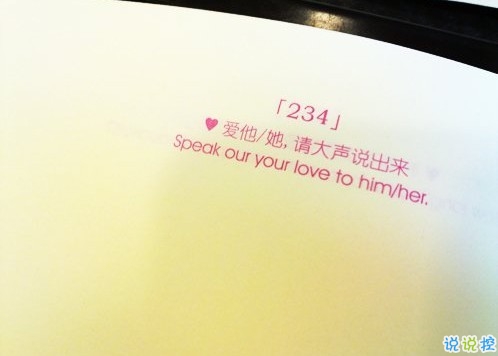 「234」
♥ 爱他/她, 请大声说出来
Speak our your love to him/her.
说说控